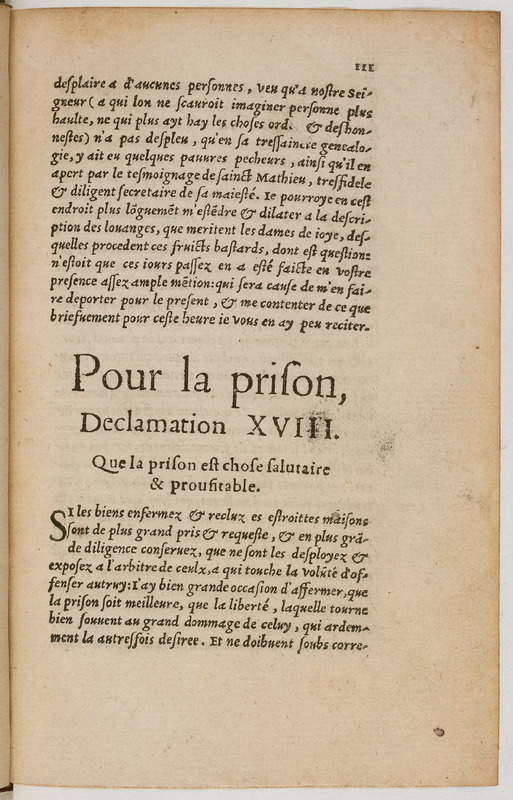 III
desplaire a d'aucunes personnes, veu qu'a nostre Sei-
gneur (a qui lon ne scauroit imaginer personne plus
haulte, ne qui plus ayt hay les choses & deshon-
nestes) n'a pas despleu, qu'en sa tressaincte genealo-
gie, y ait eu quelques pauures pecheurs, ainsi qu'il en
apert par le tesmoignage de sainct Mathieu, tresfidele
& diligent secretaire de sa maiesté. Ie pourroye en cest
endroit plus lõguemẽt m'estẽdre & dilater a la descri-
ption des louanges, que meritent les dames de ioye, des-
quelles procedent ces fruicts bastards, dont est question:
n'estoit que ces iours passez en a esté faicte en vostre
presence assez ample mẽtion: qui sera cause de m'en fai-
re deporter pour le present, & me contenter de ce que
briefuement pour ceste heure ie vous en ay peu reciter.
Pour la prison,
Declamation XVIII.
Que la prison est chose salutaire
& proufitable.
SI les biens enfermez & recluz es estroittes maisons
sont de plus grand pris & requeste, & en plus grã-
de diligence conseruez, que ne sont les desployez &
exposez a l'arbitre de ceulx, a qui touche la volũté d'of-
fenser autruy: I'ay bien grande occasion d'affermer, que
la prison soit meilleure, que la liberté, laquelle tourne
bien souuent au grand dommage de celuy, qui ardem-
ment la autresfois desiree. Et ne doibuent soubs corre-